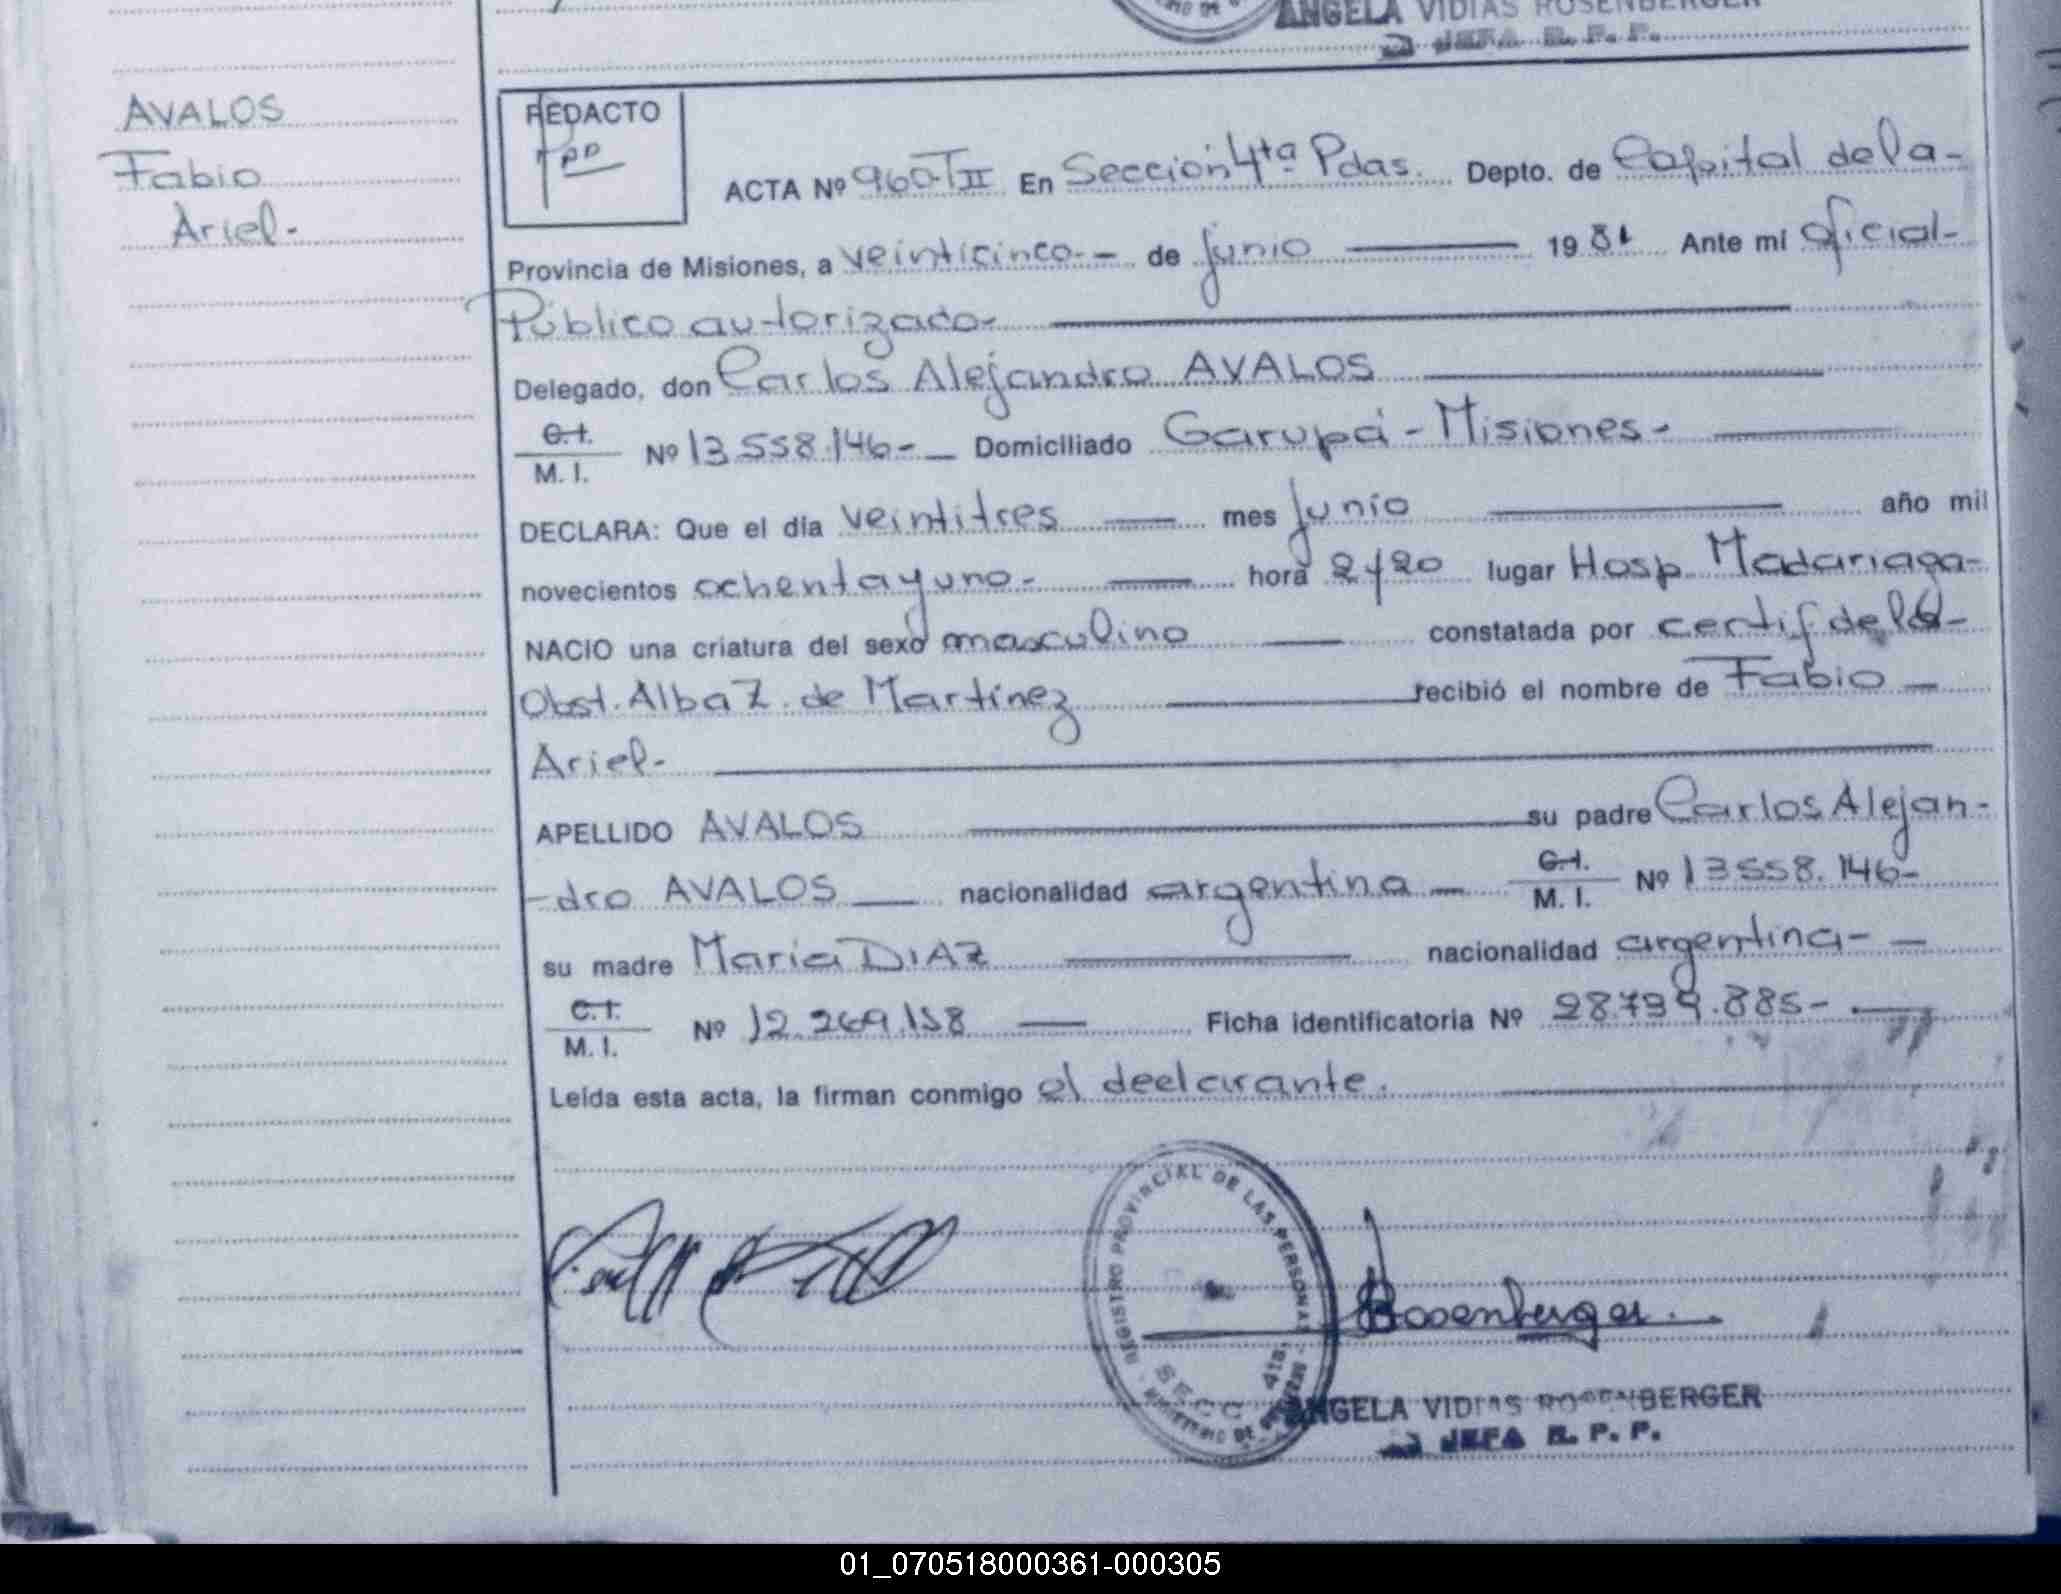 ANGELA VIDIAS ROSENBERGER
JEFA R. P. P.
AVALOS
Fabio
Ariel-
REDACTO
ACTA Nº 960-TII En Sección 4ta Pdas. Depto. de Capital de la-
Provincia de Misiones, a veinticinco- de junio 1981 Ante mí oficial-
Público autorizado-
Delegado, don Carlos Alejandro AVALOS
C.I. M. I. Nº 13.558.146- Domiciliado Garupá - Misiones-
DECLARA: Que el día veintitres mes junio año mil
novecientos ochenta y uno- hora lugar Hosp. Madariaga-
NACIO una criatura del sexo masculino constatada por certif de la-
Obst. Alba Z. de Martínez recibió el nombre de Fabio
Ariel-
APELLIDO AVALOS su padre Carlos Alejan-
-dro AVALOS nacionalidad argentina C.I. M. I. Nº 13.558.146-
su madre María DIAZ nacionalidad argentina-
C.I. M. I. Nº 12.269.158 Ficha identificatoria Nº 28.799.885-
Leída esta acta, la firman conmigo el declarante.
REGISTRO PROVINCIAL DE LAS PERSONAS
SECC 4ta.
Rosenberger.
ANGELA VIDIAS ROSENBERGER
JEFA R. P. P.
01_070518000361-000305